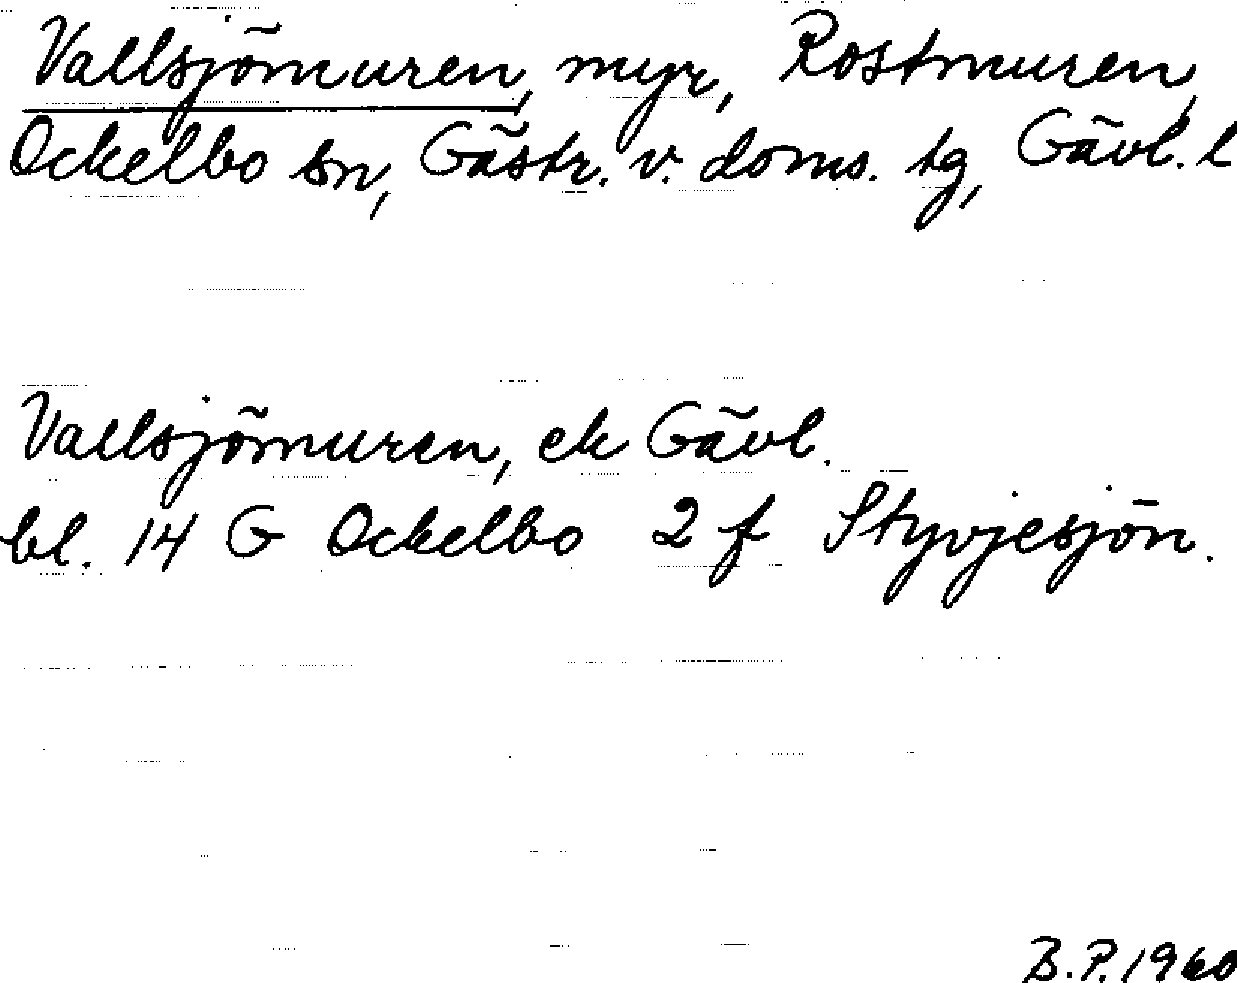 Vallsjömuren, myr, Rostmuren,
Ockelbo sn, Gästr. v. doms. tg, Gävl. l
Vallsjömuren, ek Gävl.
bl. 14 G Ockelbo 2 f Styvjesjön.
B.P. 1960